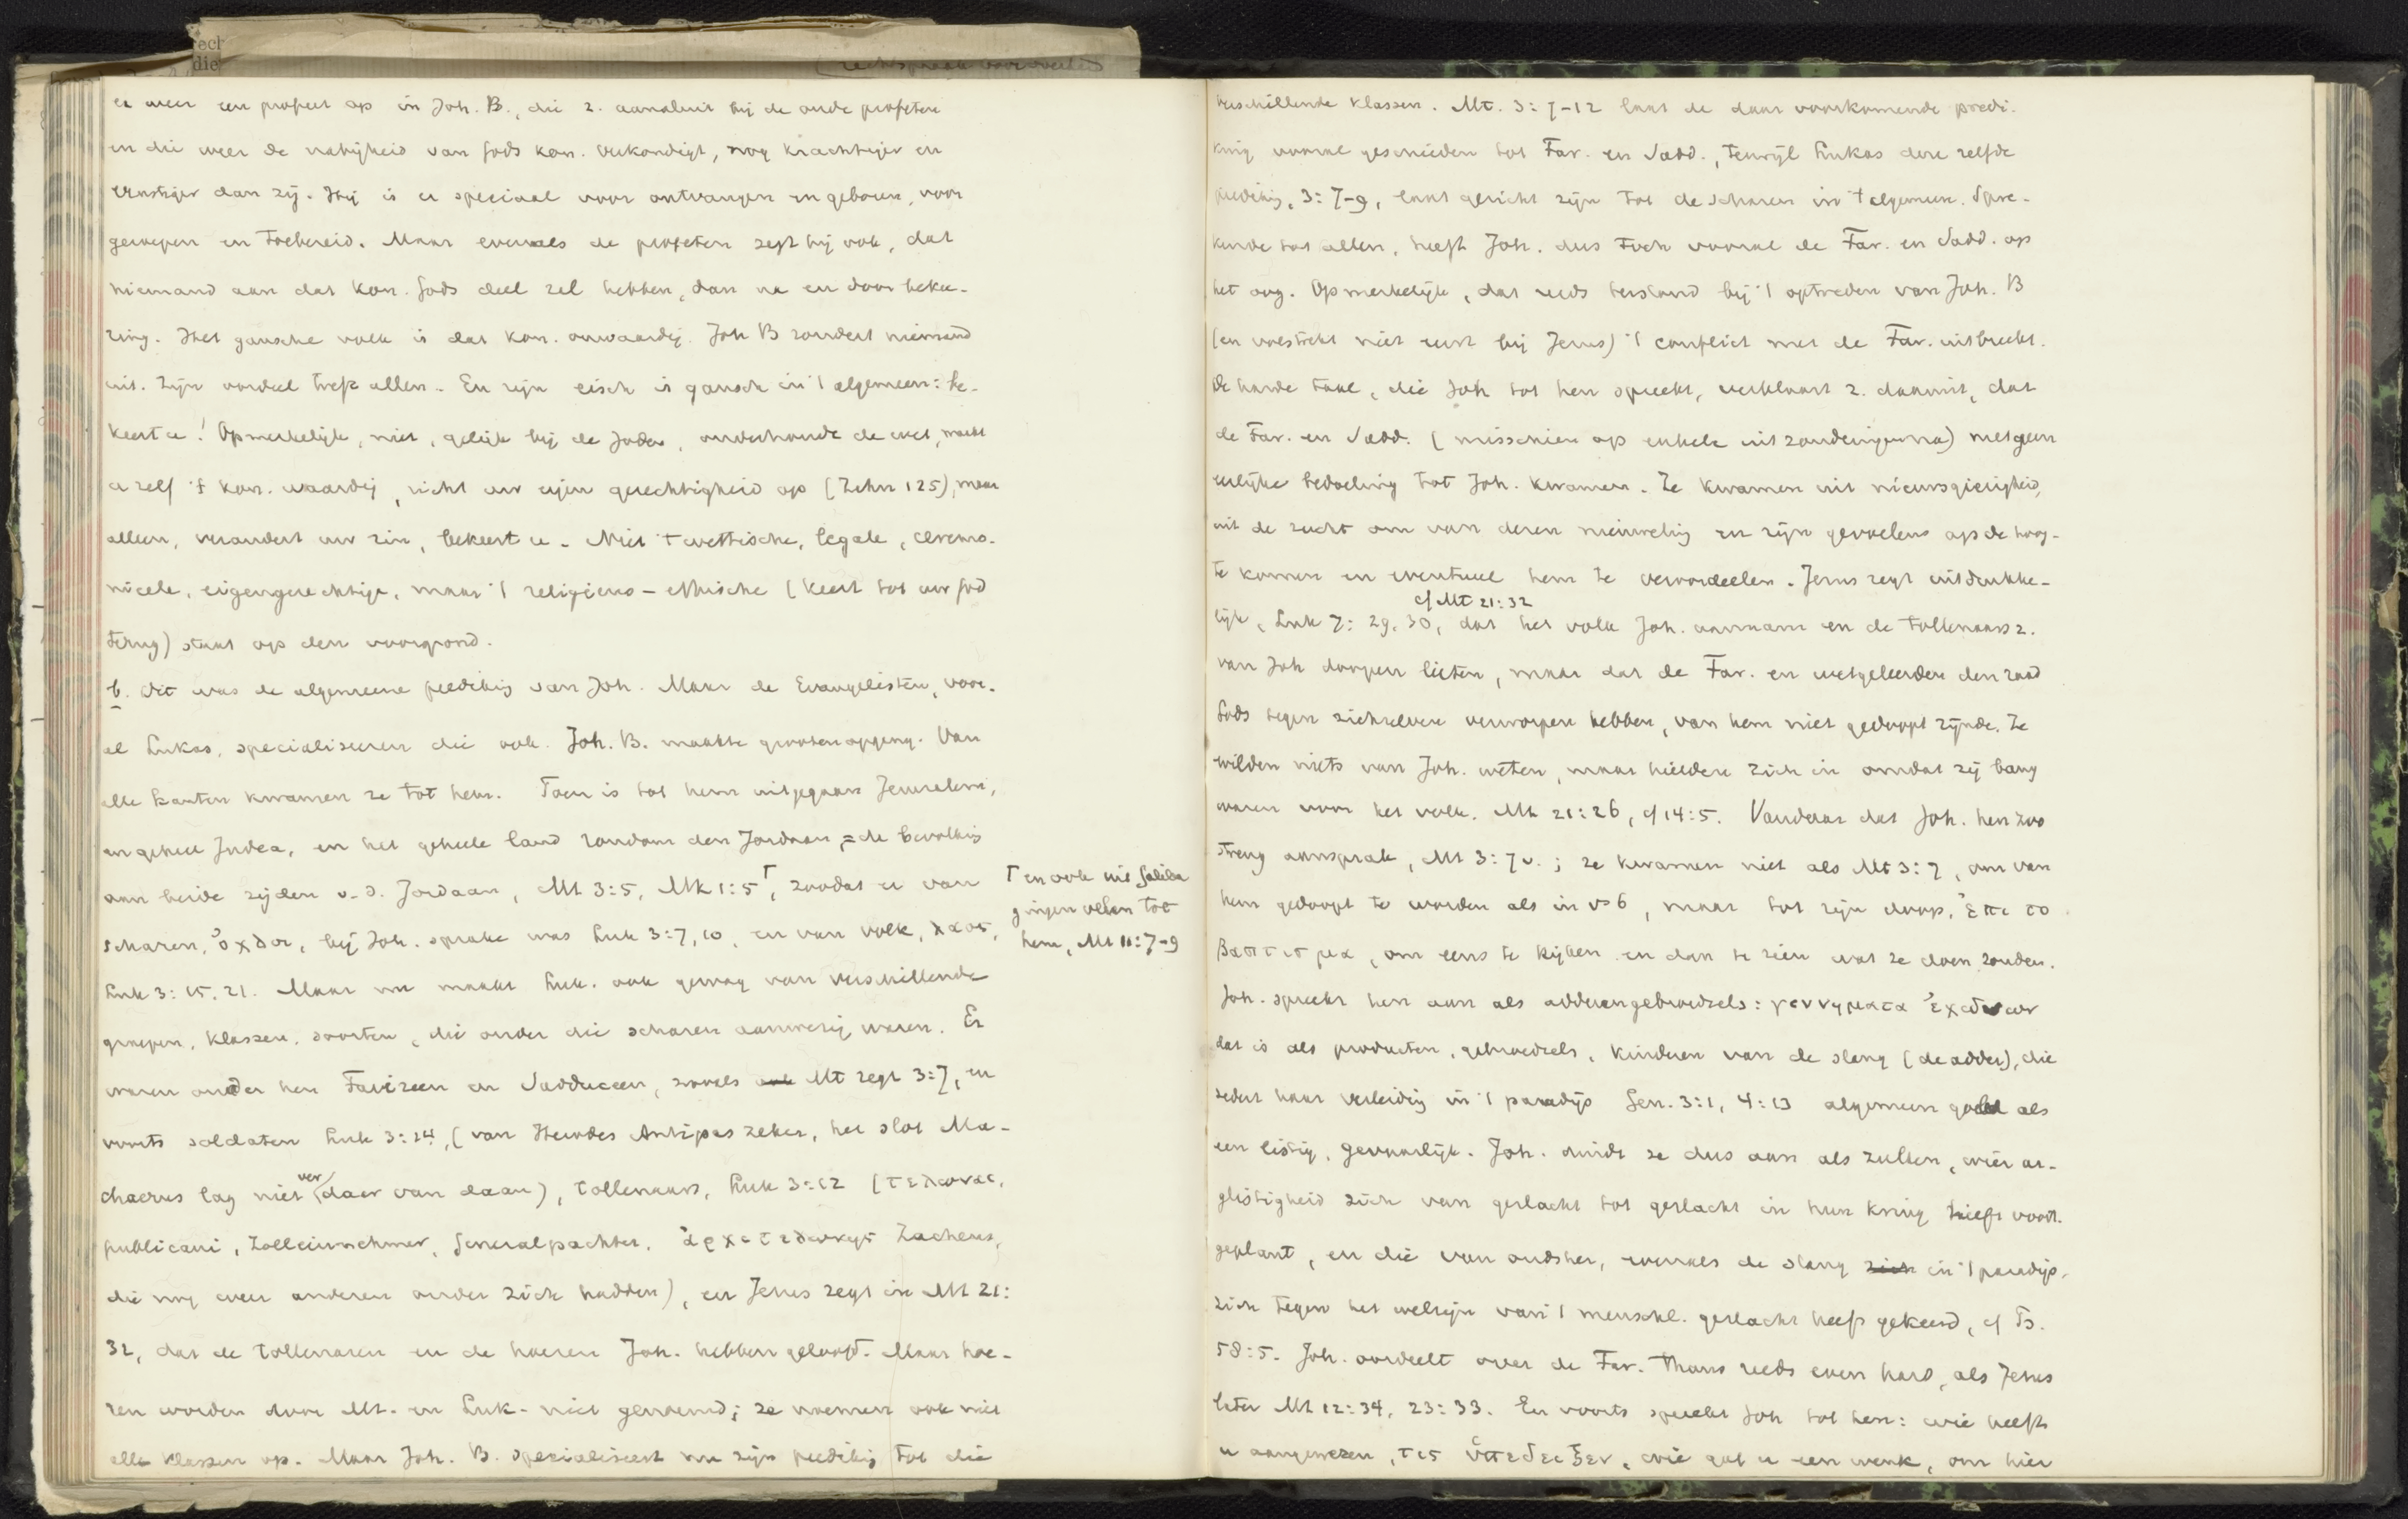 er weer een profeet op in Joh. B., die z. aansluit bij de oude profeten
en die weer de nabijheid van Gods kon. verkondigt, nog krachtiger en
ernstiger dan zij. Hij is er speciaal voor ontvangen en geboren, voor
geroepen en toebereid. Maar evenals de profeten zegt hij ook, dat
niemand aan dat kon. Gods deel zal hebben, dan na en door bekee-
ring. Het gansche volk is dat kon. onwaardig. Joh B zondert niemand
uit. Zijn oordeel treft allen. En zijn eisch is gansch in 't algemeen: be-
keert u! Opmerkelijk, niet, gelijk bij de Joden, onderhoudt de wet, maakt
u zelf 't kon. waardig, richt uw eigen gerechtigheid op (Zahn 125), maar
alleen, verandert uw zin, bekeert u. Niet 't wettische, legale, ceremo-
nieele, eigengerechtige, maar 't religieus-ethische (keert tot uw God
terug) staat op den voorgrond.
b. Dit was de algemeene prediking van Joh. Maar de Evangelisten, voor-
al Lukas, specialiseeren die ook. Joh. B. maakte grooten opgang. Van
alle kanten kwamen ze tot hem. Toen is tot hem uitgegaan Jeruzalem,
en geheel Judea, en het geheele land rondom den Jordaan, = de bevolking
aan beide zijden v. d. Jordaan, Mt 3:5, Mk 1:5 ⊤, zoodat er van
⊤ en ook uit Galilea
gingen velen tot
hem, Mt 11:7-9
scharen, ὄχλοι, bij Joh. sprake was Luk 3:7, 10, en van volk, λαος,
Luk 3:15, 21. Maar nu maakt Luk. ook gewag van verschillende
groepen, klassen, soorten, die onder die scharen aanwezig waren. Er
waren onder hen Farizeen en Sadduceen, zooals ook Mt zegt 3:7, en
voorts soldaten Luk 3:14, (van Herodes Antipas zeker, het slot Ma-
chaerus lag niet ver daar van daan), tollenaars, Luk 3:12 (τελωναι,
publicani, Zolleinnehmer, Generalpachter, ἀρχιτελωνης Zacheus,
die nog weer anderen onder zich hadden), en Jezus zegt in Mt 21:
32, dat de tollenaren en de hoeren Joh. hebben geloofd. Maar hoe-
ren worden door Mt. en Luk. niet genoemd; ze noemen ook niet
alle klassen op. Maar Joh. B. specialiseert nu zijn prediking tot die
verschillende klassen. Mt. 3:7-12 laat de daar voorkomende predi-
king vooral geschieden tot Far. en Sadd., terwijl Lukas deze zelfde
prediking, 3:7-9, laat gericht zijn tot de scharen in 't algemeen. Spre-
kende tot allen, heeft Joh. dus toch vooral de Far. en Sadd. op
het oog. Opmerkelijk, dat reeds terstond bij 't optreden van Joh. B
(en volstrekt niet eerst bij Jezus) 't conflict met de Far. uitbreekt.
De harde taal, die Joh tot hen spreekt, verklaart z. daaruit, dat
de Far. en Sadd. (misschien op enkele uitzonderingen na) met geen
eerlijke bedoeling tot Joh. kwamen. Ze kwamen uit nieuwsgierigheid,
uit de zucht om van deren nieuweling en zijn gevoelens op de hoog-
te komen en eventueel hem te veroordeelen. Jezus zegt uitdrukke-
cf Mt 21:32
lijk, Luk 7:29, 30, dat het volk Joh. aannam en de tollenaars z.
van Joh doopen lieten, maar dat de Far. en wetgeleerden den raad
Gods tegen zichzelven verworpen hebben, van hem niet gedoopt zijnde. Ze
wilden niets van Joh. weten, maar hielden zich in omdat zij bang
waren voor het volk. Mt 21:26, cf 14:5. Vandaar dat Joh. hen zoo
streng aansprak, Mt 3:7v.; ze kwamen niet als Mt 3:7, om van
hem gedoopt te worden als in vs 6, maar tot zijn doop, ἐπι το
βαπτισμα, om eens te kijken en dan te zien wat ze doen zouden.
Joh. spreekt hen aan als adderengebroedsels: γεννηματα ἐχιδνων
dat is als producten, gebroedsels, kinderen van de slang (de adder), die
sedert haar verleiding in 't paradijs Gen. 3:1, 4:13 algemeen gold als
een listig, gevaarlijk. Joh. duidt ze dus aan als zulken, wier ar-
glistigheid zich van geslacht tot geslacht in hun kring heeft voort-
geplant, en die van oudsher, evenals de slang zich in 't paradijs,
zich tegen het welzijn van 't menschl. geslacht heeft gekeerd, cf Ps.
58:5. Joh. oordeelt over de Far. thans reeds even hard, als Jezus
later Mt 12:34, 23:33. En voorts spreekt Joh tot hen: wie heeft
u aangewezen, τις ὑπεδειξεν, wie gaf u een wenk, om hier